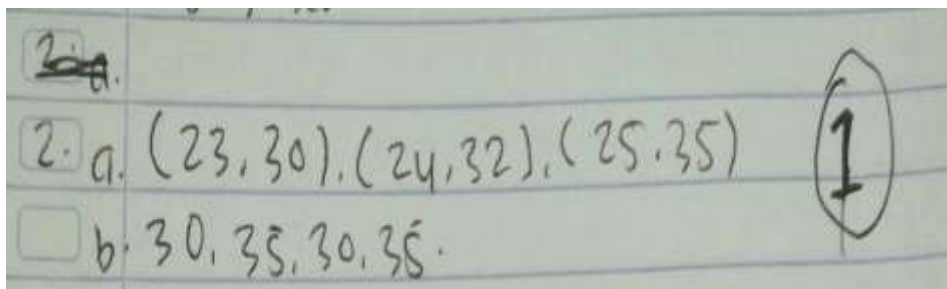 2. a. (23, 30), (24, 32), (25, 35) 1
b. 30, 35, 30, 35.